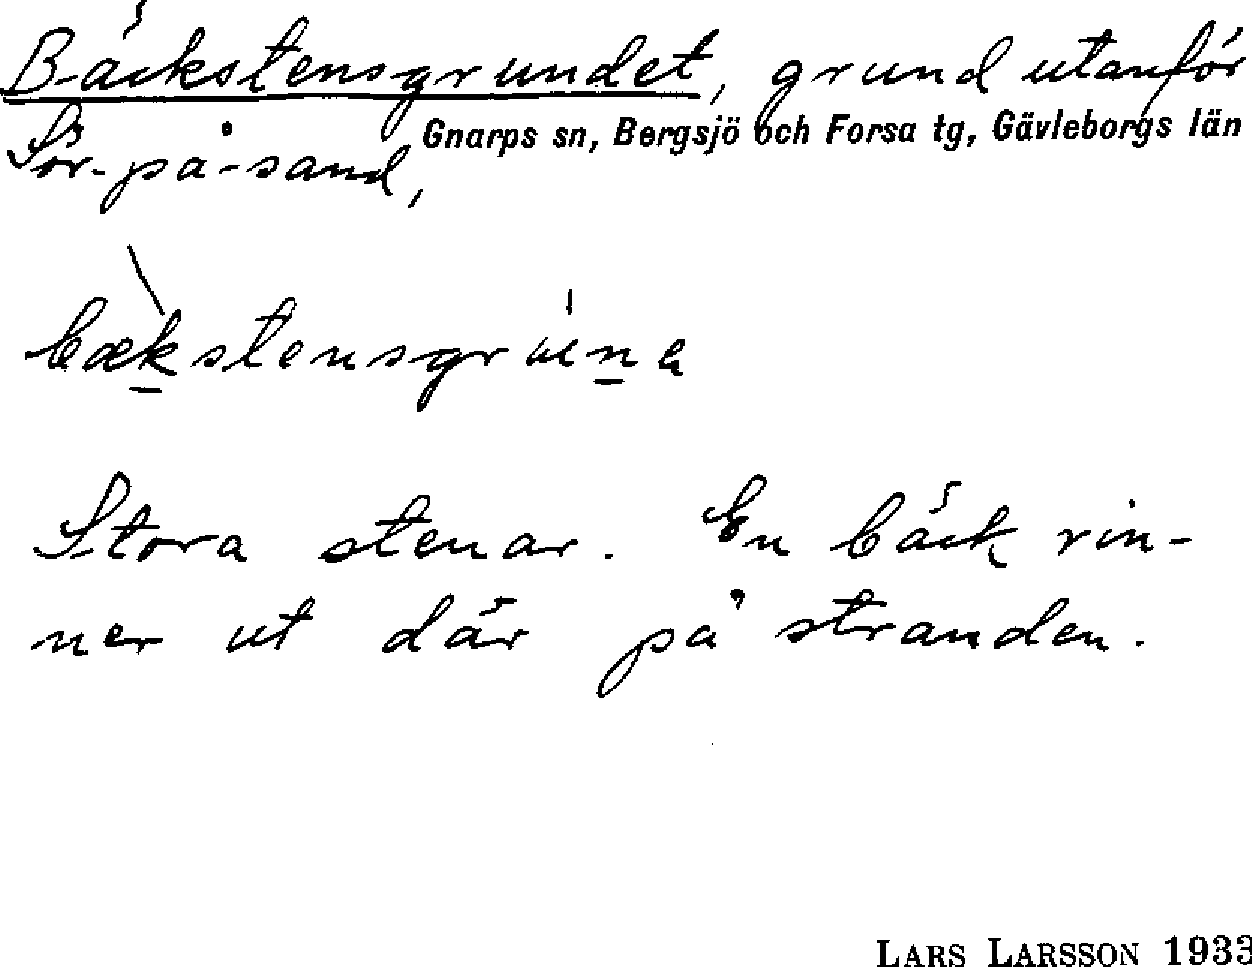 Bäckstensgrundet, grund utanför
Gnarps sn, Bergsjö och Forsa tg, Gävleborgs län
Sör-på-sand,
bækstensgruna
Stora stenar. En bäck rin-
ner ut där på stranden.
LARS LARSSON 1933